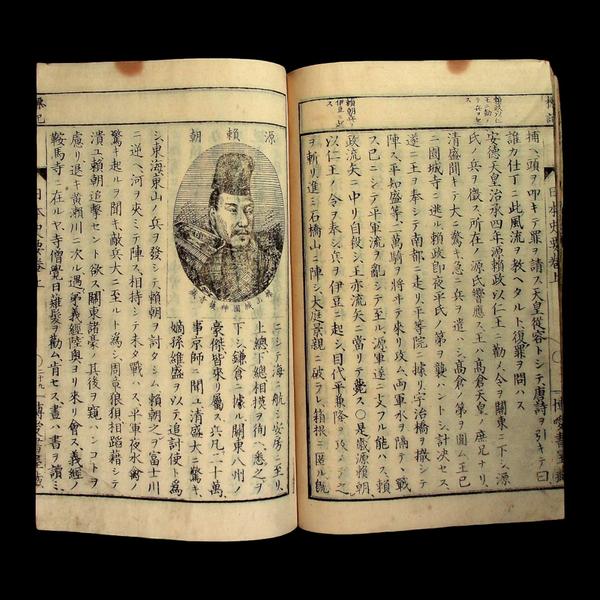 標記
日本史要卷上
頼政以仁王ニ勧メテ兵ヲ起ス
頼朝兵ヲ伊豆ニ起ス
捕ヘ頭ヲ叩キテ罪ヲ請ス天皇従容トシテ唐詩ヲ引キテ曰
誰カ仕丁ニ此風流ヲ教ヘタルト復罪ヲ問ハス
安德天皇治承四年源頼政以仁王ニ勧メ令ヲ關東ニ下シ源
氏ノ兵ヲ徴ス、所在ノ源氏響應ス王ハ高倉天皇ノ庶兄ナリ、
清盛聞キテ大ニ驚キ急ニ兵ヲ遣ハシ高倉ノ第ヲ圍ム王已
ニ園城寺ニ逃ル頼政即夜平氏ノ第ヲ襲ハントシ計決セス、
遂ニ王ヲ奉シテ南都ニ走リ平等院ニ據リ宇治橋ヲ撤シテ
陣ス平知盛等二萬騎ヲ將ヰテ來リ攻ム両軍水ヲ隔テヽ戰
ス已ニシテ平軍流ヲ亂シテ至ル、源軍遂ニ支フル能ハス、頼
政流矢ニ中リ自殺シ王亦流矢ニ當リテ薨ス〇是歳源頼朝、
以仁王ノ令ヲ奉シ兵ヲ伊豆ニ起シ目代平兼隆ヲ攻メテ之
ヲ斬リ進ミ石橋山ニ陣シ大庭景親ニ破ラレ箱根ニ匿ル既
源頼朝
ニシテ海ニ航シ安房ニ至リ、
上總下總相摸ヲ徇ヘ悉之ヲ
下シ鎌倉ニ據ル關東八州ノ
豪傑皆來リ屬ス兵凡二十萬
事京師ニ聞ユ清盛大ニ驚キ、
嫡孫維盛ヲ以テ追討使ト爲
シ、東海東山ノ兵ヲ發シテ頼朝ヲ討タシム頼朝之ヲ富士川
ニ逆ヘ河ヲ夾ミテ陣ス相持シテ未タ戰ハス、平軍夜水禽ノ
驚キ起ルヲ聞キ敵兵大ニ至ルト爲シ、周章狼狽相蹈藉シテ
潰ユ頼朝追撃セント欲ス關東諸豪ノ其後ヲ窺ハンコトヲ
慮リ退キ黄瀬川ニ次ル遇弟義經陸奥ヨリ來リ會ス義經ノ
鞍馬寺ニ在ルヤ寺僧覺日薙髪ヲ勸ム肯セス、晝ハ書ヲ讀ミ、
標記
日本史要卷上